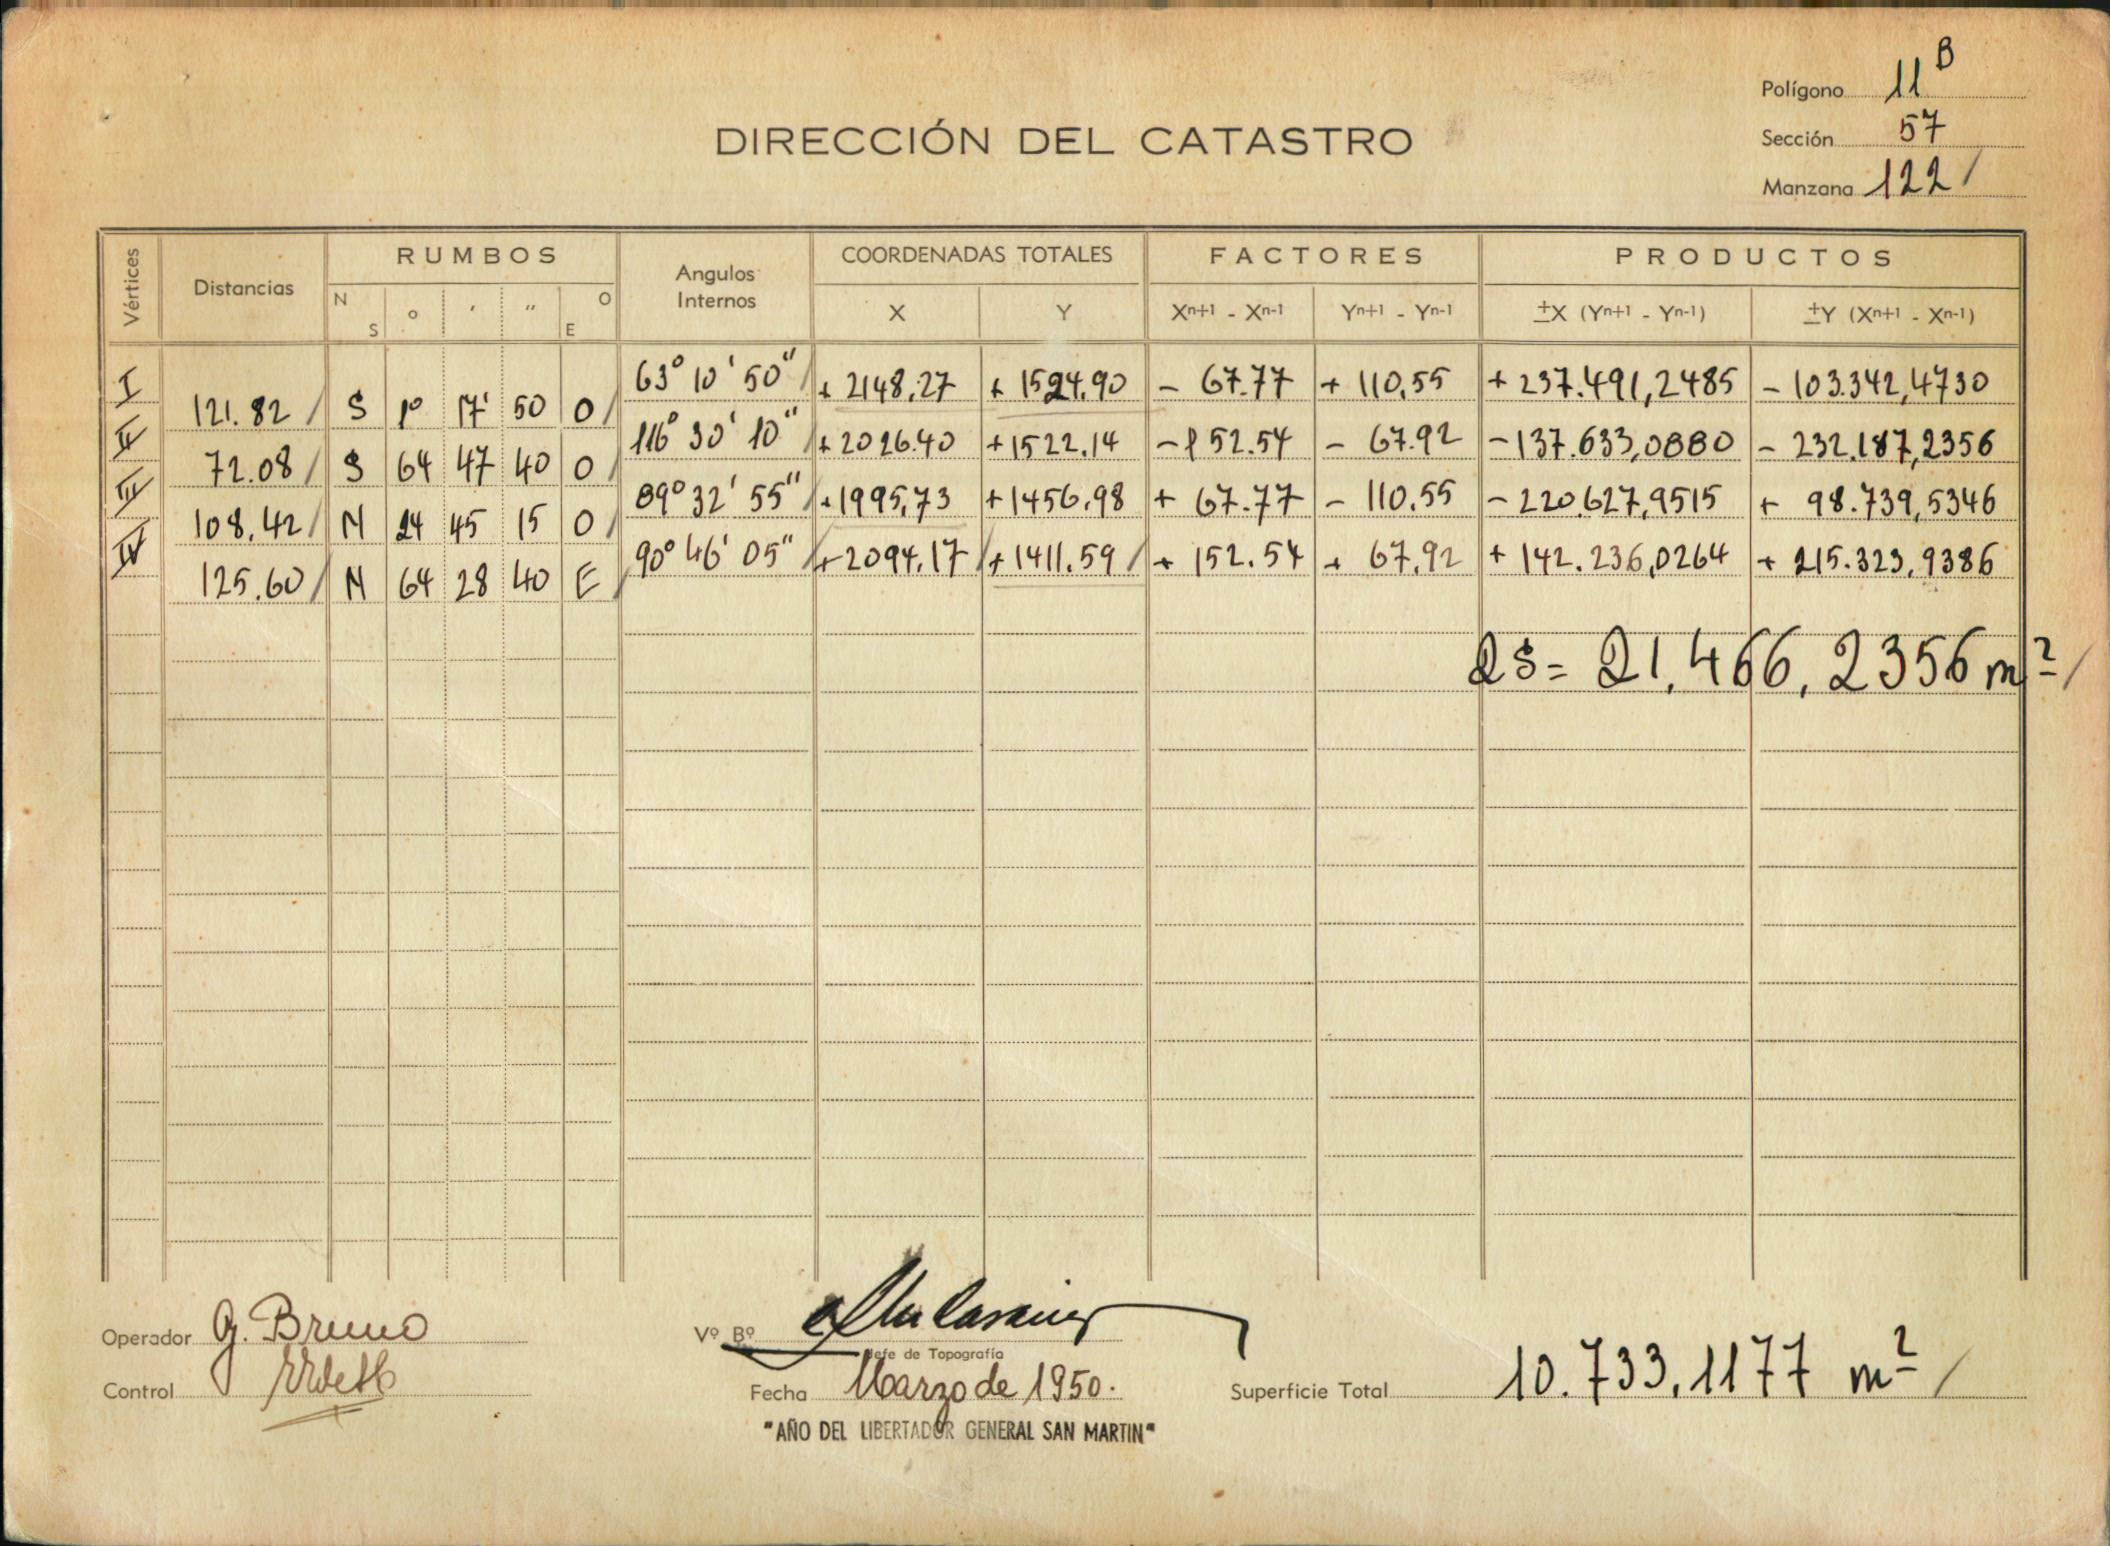 Polígono 11 B
DIRECCIÓN DEL CATASTRO
Sección 57
Manzana 122 /
Vértices Distancias RUMBOS Angulos Internos COORDENADAS TOTALES FACTORES PRODUCTOS
N S ° ' " O E X Y Xⁿ⁺¹ - Xⁿ⁻¹ Yⁿ⁺¹ - Yⁿ⁻¹ ±X (Yⁿ⁺¹ - Yⁿ⁻¹) ±Y (Xⁿ⁺¹ - Xⁿ⁻¹)
I 63° 10' 50" / + 2148.27 + 1524.90 - 67.77 + 110.55 + 237.491,2485 - 103.342,4730
121.82 / S 1° 17' 50 O /
II 116° 30' 10" + 2026.40 + 1522.14 - 152.54 - 67.92 - 137.633,0880 - 232.187,2356
72.08 / S 64 47 40 O /
III 89° 32' 55" + 1995,73 + 1456.98 + 67.77 - 110.55 - 220.627,9515 + 98.739,5346
108.42 / N 24 45 15 O /
IV 90° 46' 05" / + 2094.17 / + 1411.59 / + 152.54 + 67.92 + 142.236,0264 + 215.323,9386
125.60 / N 64 28 40 E /
2S = 21.466,2356 m² /
Operador G. Bruno
Vº Bº
Jefe de Topografía
Control
Fecha Marzo de 1950.
Superficie Total 10.733,1177 m² /
"AÑO DEL LIBERTADOR GENERAL SAN MARTIN"